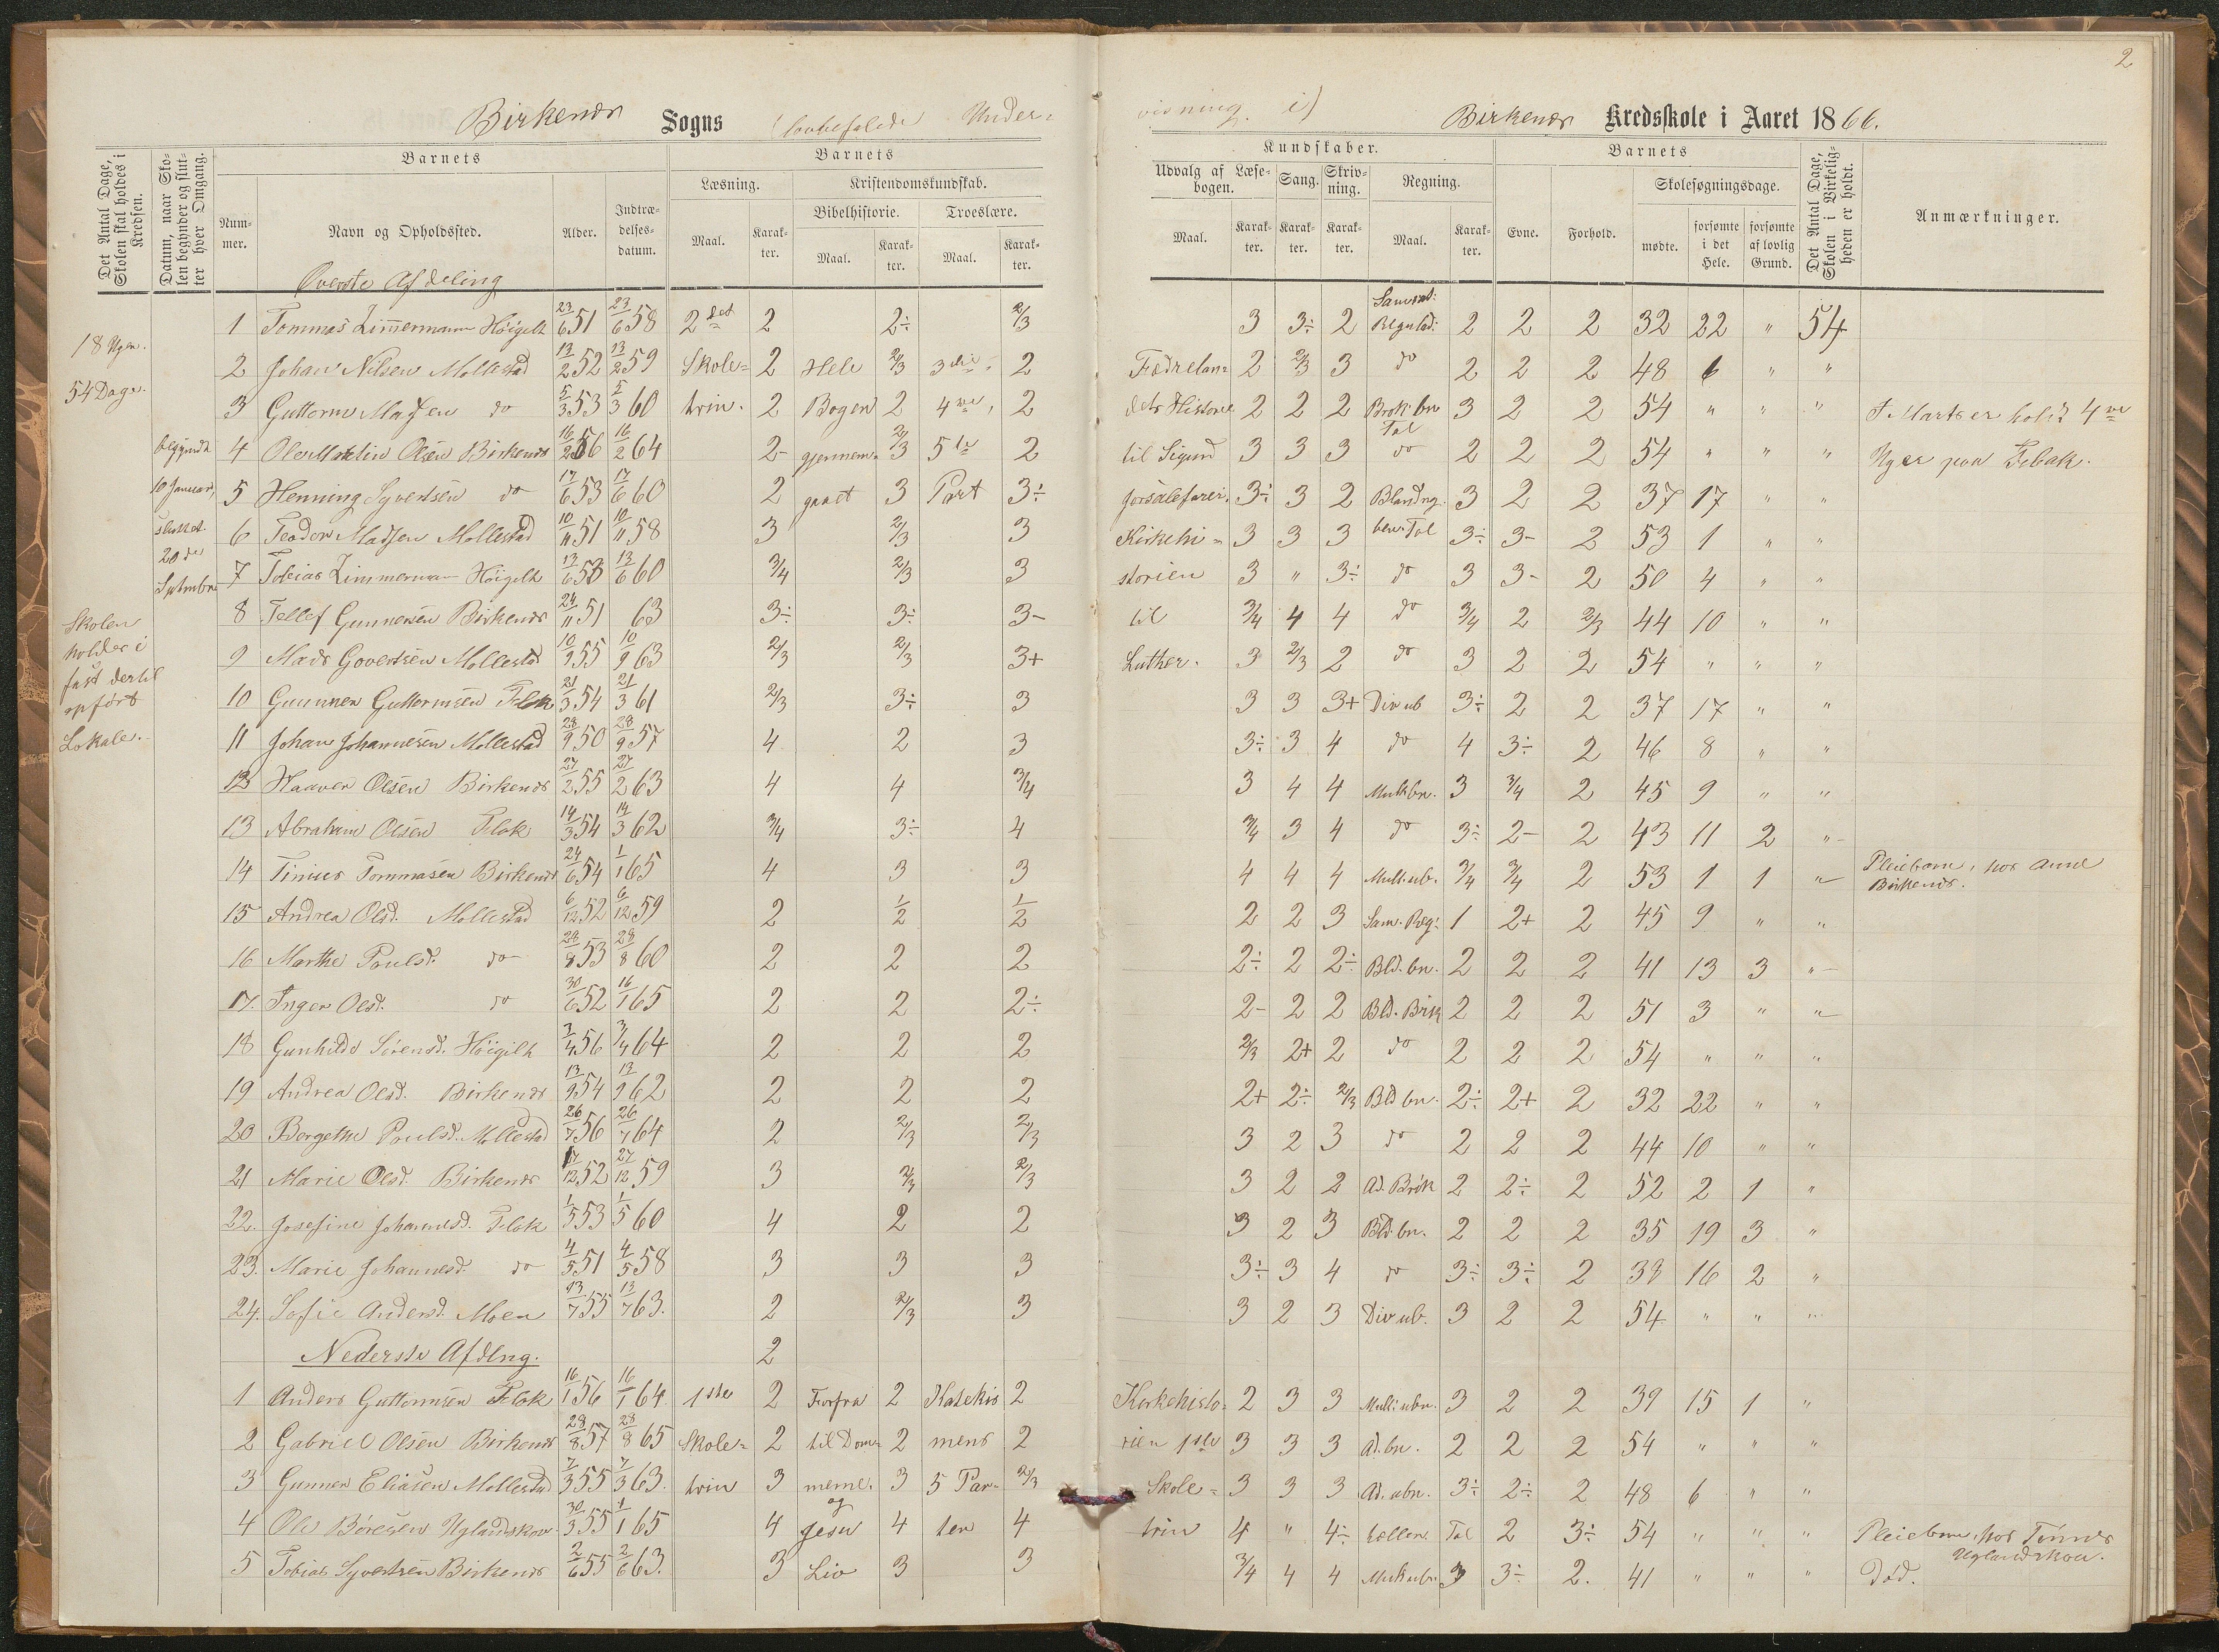 2
Birkenes Sogns (lovbefalede Under-
visning i) Birkenes Kredsskole i Aaret 1866.
Det Antal Dage, Skolen skal holdes i Kredsen.
Datum, naar Skolen begynder og slutter hver Omgang.
Nummer.
Barnets
Navn og Opholdssted.
Alder.
Indtrædelsesdatum.
Barnets
Læsning.
Maal.
Karakter.
Kristendomskundskab.
Bibelhistorie.
Maal.
Karakter.
Troeslære.
Maal.
Karakter.
Kundskaber.
Udvalg af Læsebogen.
Maal.
Karakter.
Sang.
Karakter.
Skrivning.
Karakter.
Regning.
Maal.
Karakter.
Barnets
Evne.
Forhold.
Skolesøgningsdage.
mødte.
forsømte i det Hele.
forsømte af lovlig Grund.
Det Antal Dage, Skolen i Virkeligheden er holdt.
Anmærkninger.
18 Uger.
54 Dage.
begyndt
10 Januar,
sluttet
20de
Septembr.
Skolen
holdes i
fast dertil
opført
Lokale.
Øverste Afdeling
1 Tommas Zimmermann Høigilt 23/6 51 23/6 58 2det 2 2÷ 2/3 3 3÷ 2 Samsat: Regulad: 2 2 2 32 22 " 54
2 Johan Nilsen Mollestad 13/2 52 13/2 59 Skole- 2 Hele 2/3 3die 2 Fædrelan- 2 2/3 3 do 2 2 2 48 6 " "
3 Guttorm Madsen do 5/3 53 5/3 60 trin. 2 Bogen 2 4de, 2 dets Historie 2 2 2 Brok: bn 3 2 2 54 " " " I Marts er holdt 4re
4 Ole Martin Olsen Birkenes 16/2 56 16/2 64 2- gjennem- 2/3 3 5te 2 til Sigurd 3 3 3 Tal do 2 2 2 54 " " " Uger paa Flbak.
5 Henning Syvertsen do 17/6 53 17/6 60 2 gaaet 3 Part 3÷ Jorsalefarer. 3÷ 3 2 Blandng. 3 2 2 37 17 " "
6 Teodor Madsen Mollestad 10/11 51 10/11 58 3 2/3 3 Kirkehi- 3 3 3 ben. Tal 3÷ 3- 2 53 1 " "
7 Tobias Zimmerman Høigilt 13/6 53 13/6 60 3/4 2/3 3 storien 3 " 3÷ do 3 3- 2 50 4 " "
8 Tellef Gunnersen Birkenes 24/11 51 63 3÷ 3÷ 3- til 3/4 4 4 do 3/4 2 2/3 44 10 " "
9 Mads Govertsen Mollestad 10/9 55 10/9 63 2/3 2/3 3+ Luther. 3 2/3 2 do 3 2 2 54 " " "
10 Gunner Guttormsen Flak 21/3 54 21/3 61 2/3 3÷ 3 3 3 3+ Div ub 3÷ 2 2 37 17 " "
11 Johan Johannesen Mollestad 28/9 50 28/9 57 4 2 3 3÷ 3 4 do 4 3÷ 2 46 8 " "
12 Haaver Olsen Birkenes 27/2 55 27/2 63 4 4 3/4 3 4 4 Mult bn. 3 3/4 2 45 9 " "
13 Abraham Olsen Flak 14/3 54 14/3 62 3/4 3÷ 4 3/4 3 4 do 3÷ 2- 2 43 11 2 "
14 Tinius Tommasen Birkenes 24/6 54 1/1 65 4 3 3 4 4 4 Mult. ub. 3/4 3/4 2 53 1 1 " Pleiebarn, hos Anne Birkenes.
15 Andrea Olsd. Mollestad 6/12 52 6/12 59 2 1/2 1/2 2 2 3 Sam. Reg: 1 2+ 2 45 9 " "
16 Marthe Poulsd. do 28/8 53 28/8 60 2 2 2 2÷ 2 2÷ Bld. bn. 2 2 2 41 13 3 "
17. Inger Olsd. do 30/6 52 16/1 65 2 2 2÷ 2- 2 2 Bld. Brøk 2 2 2 51 3 " "
18 Gunhilde Sørensd. Høigilt 3/4 56 3/4 64 2 2 2 2/3 2+ 2 do 2 2 2 54 " " "
19 Andrea Olsd. Birkenes 13/9 54 13/9 62 2 2 2 2+ 2÷ 2/3 Bld bn. 2÷ 2+ 2 32 22 " "
20 Bergethe Poulsd. Mollestad 26/7 56 26/7 64 2 2/3 2/3 3 2 3 do 2 2 2 44 10 " "
21 Marie Olsd. Birkenes 27/12 52 27/12 59 3 2/3 2/3 3 2 2 Ad. Brøk 2 2÷ 2 52 2 1 "
22. Josefine Johannesd. Flak 1/5 53 1/5 60 4 2 2 3 2 3 Bld bn. 2 2 2 35 19 3 "
23. Marie Johannesd. do 4/5 51 4/5 58 3 3 3 3÷ 3 4 do 3÷ 3÷ 2 38 16 2 "
24. Sofie Andersd. Moen 13/7 55 13/7 63. 2 2/3 3 3 2 3 Div ub. 3 2 2 54 " " "
Nederste Afdlng. 2
1 Anders Guttormsen Flak 16/1 56 16/1 64 1ste 2 Forfra 2 Katekis 2 Kirkehisto- 2 3 3 Mult: ubn. 3 2 2 39 15 1 "
2 Gabriel Olsen Birkenes 28/8 57 28/8 65 Skole- 2 til Dom- 2 mens 2 rien 1ste 3 3 3 Ad. bn. 2 2 2 54 " " "
3 Gunner Eliasen Mollestad 7/3 55 7/3 63. trin 3 merne. 3 5 Par- 2/3 Skole- 3 3 3 Ad. ubn. 3÷ 2÷ 2 48 6 " "
4 Ole Børesen Uglandskow 30/3 55 1/1 65 4 og Jesu 4 ter 4 trin 4 " 4÷ hellen. Tal 2 3÷ 54 " " " Pleiebarn, hos Tønnes Uglandskow.
5 Tobias Syvertsen Birkenes 2/6 55 2/6 63. 3 Liv 3 3 3/4 4 4 Mult ubn. 3 3÷ 2. 41 " " " Død.